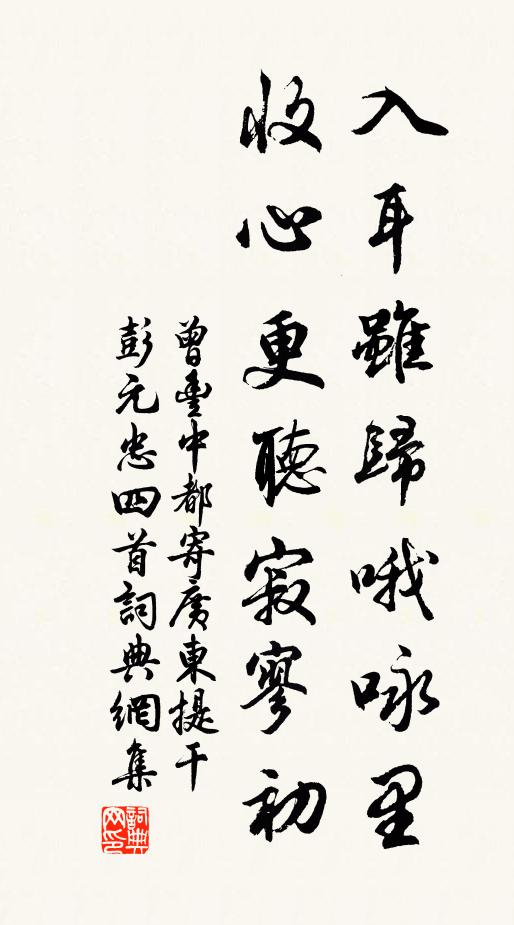 入耳雖歸哦咏里
收心更聽寂寥初
曾豊中都寄廣東提干
彭元忠四首詞典網集
詞典网印